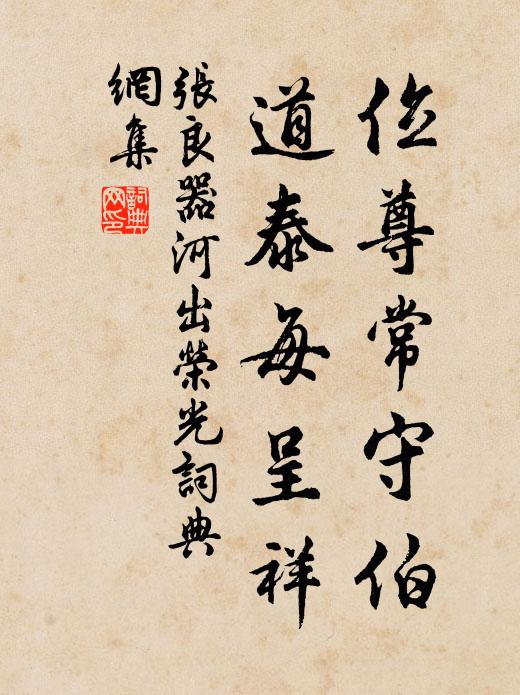 位尊常守伯
道泰每呈祥
張良器河出榮光詞典
網集
詞典
網印